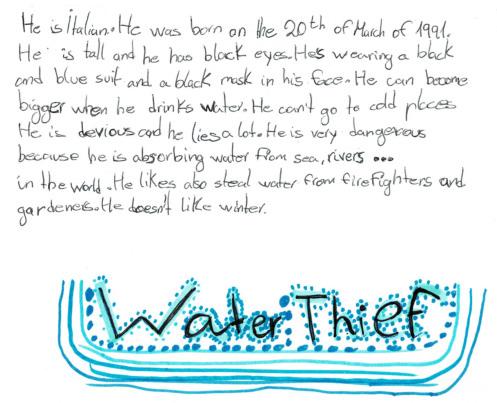 He is Italian. He was born on the 20th of March of 1991.
He is tall and he has black eyes. He's wearing a black
and blue suit and a black mask in his face. He can become
bigger when he drinks water. He can't go to cold places
He is devious and he lies a lot. He is very dangerous
because he is absorbing water from sea, rivers ...
in the world. He likes also steal water from firefighters and
gardeners. He doesn't like winter.
Water Thief